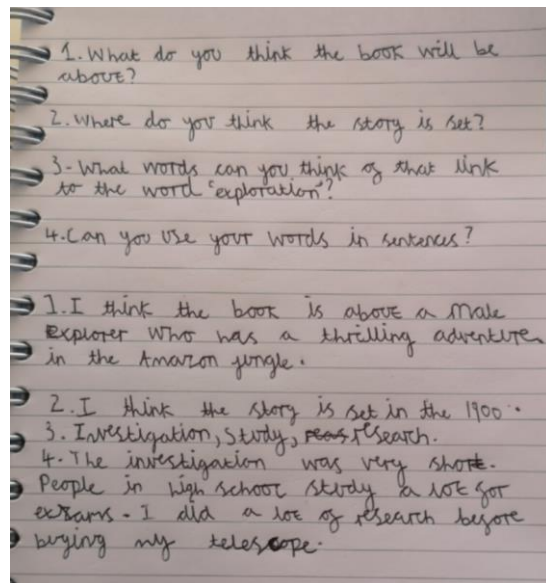 1. What do you think the book will be
about?
2. Where do you think the story is set?
3 - What words can you think of that link
to the word "exploration"?
4. Can you use your words in sentences?
1. I think the book is about a Male
Explorer Who has a thrilling adventure
in the Amazon jungle.
2. I think the story is set in the 1900.
3. Investigation, Study, research.
4. The investigation was very short.
People in high school study a lot for
exams. I did a lot of research before
buying my telescope.